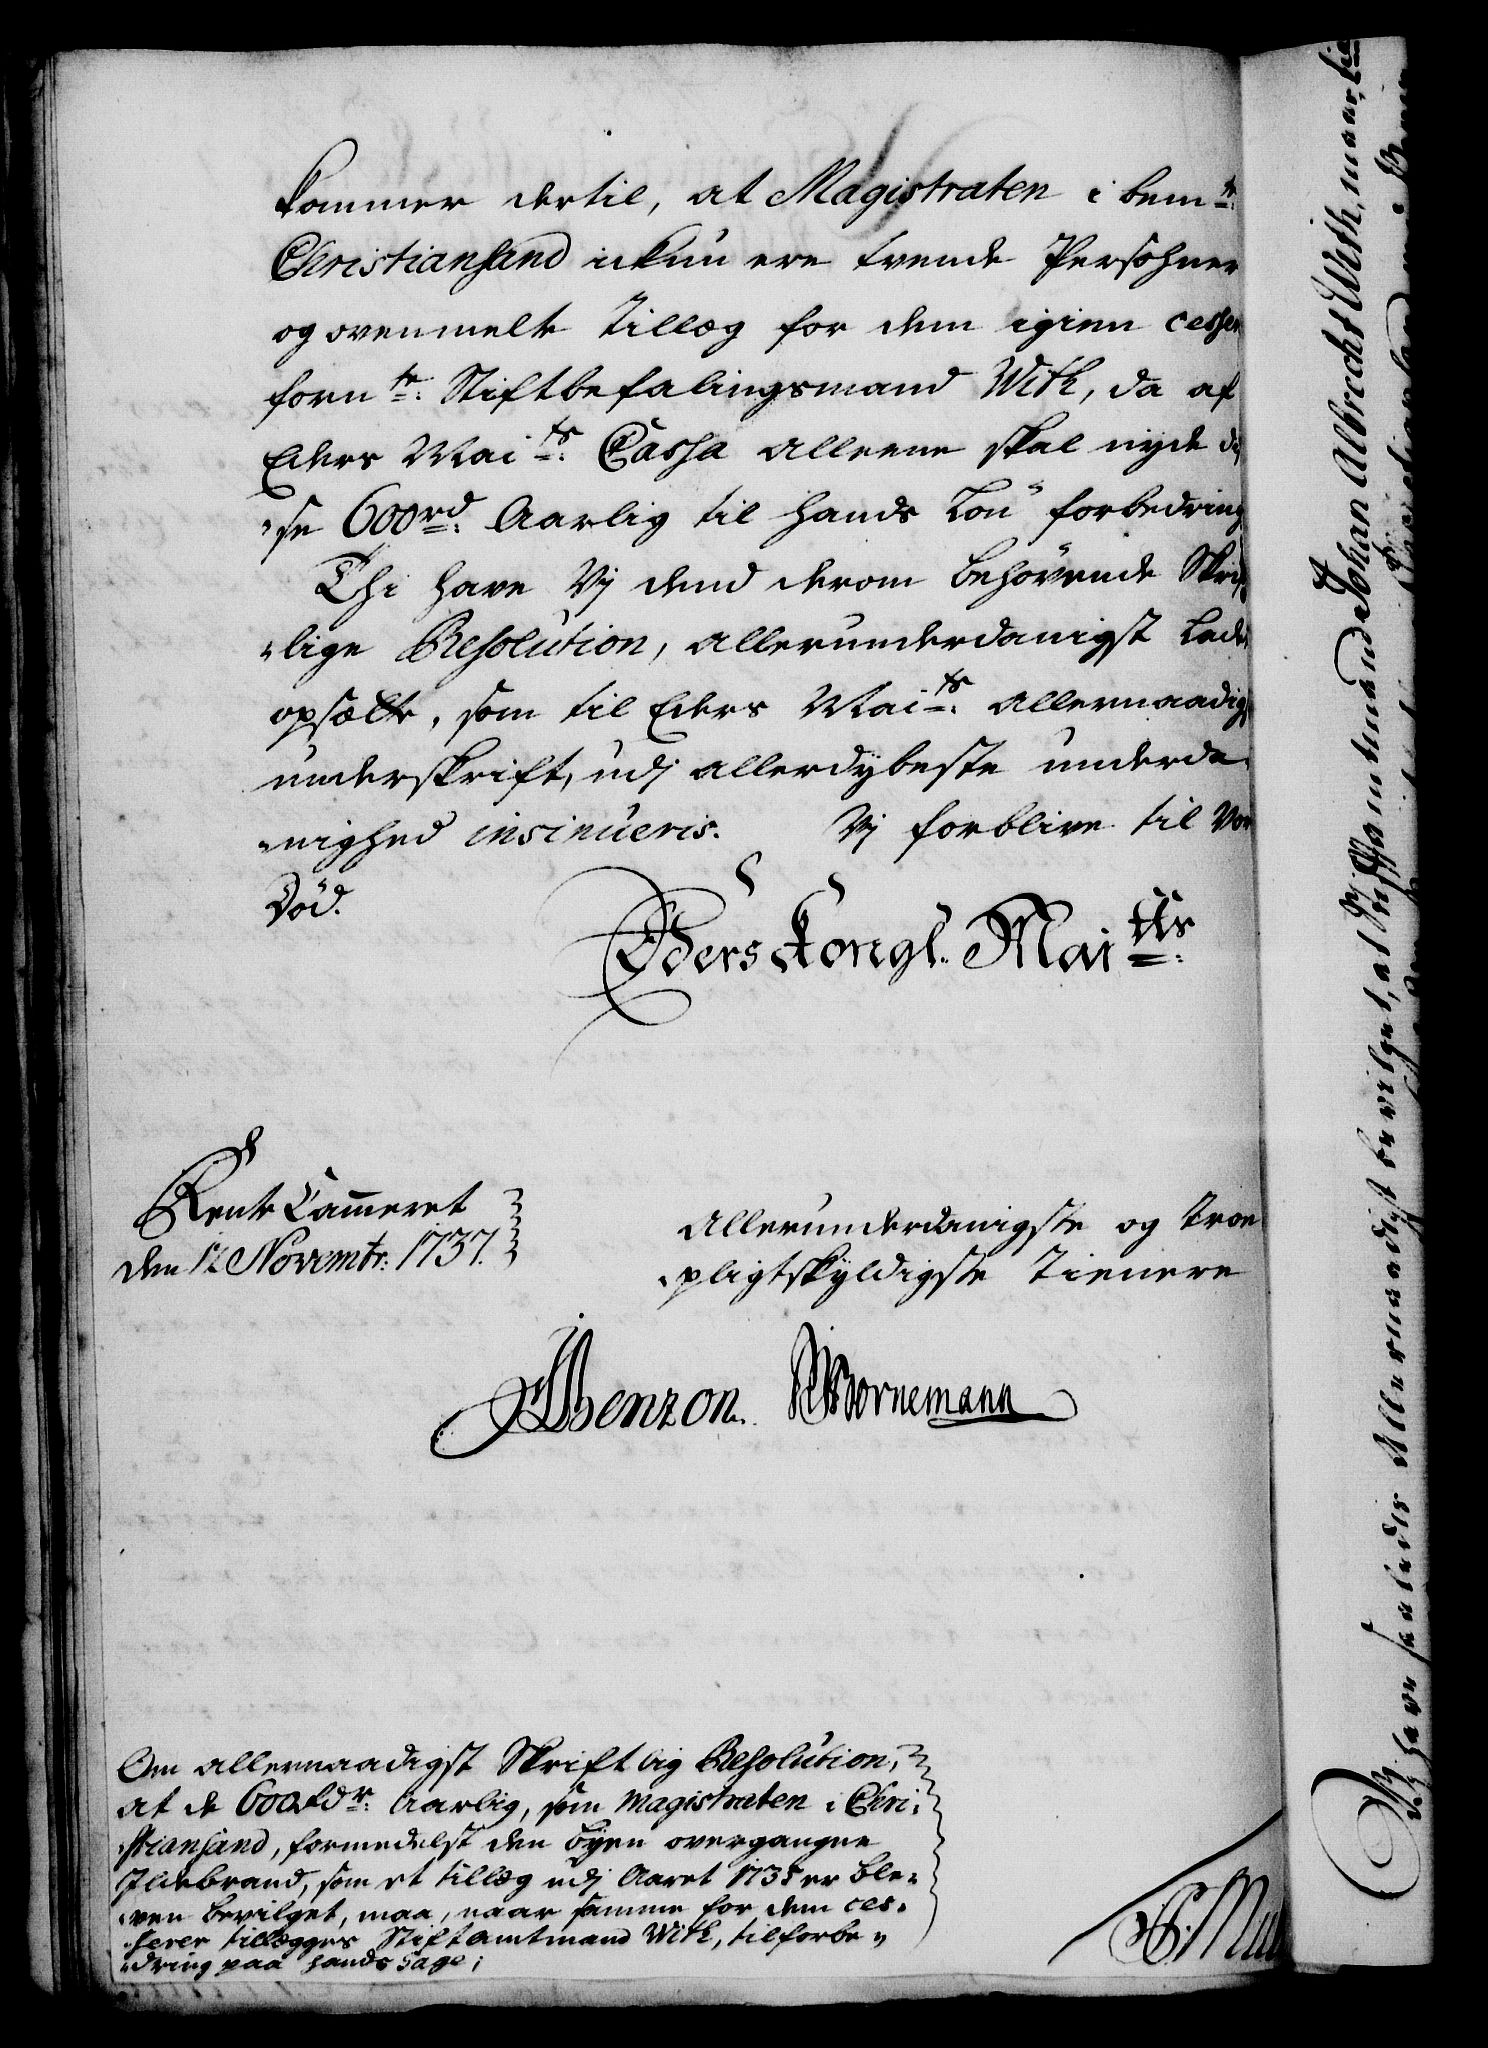 kommer dertil, at Magistraten i bem.te
Christiansand ickun ere trende Persohner
og ovenmelte Tillæg for dem igien cesser
forn.te Stiftbefalingsmand With, da af
Eders Mai.ts Cassa alleene skal nyde di
"se 600 rd. Aarlig til hands Løn forbedring
Thi have Vj dend derom behövende Skri
"lige Resolution, allerunderdanigst lade
opsætte, som til Eders Mai.ts allernaadig
underskrift, udj allerdybeste underda
"nighed insinueris. Vj forblive til Vor
Död.
Eders Kongl. Mai.tts
Rente Cammeret
den 12 Novembr: 1737.
Allerunderdanigste og troe
"pligtskyldigste Tienere
Benzon. Bornemann
Om allernaadigst Skriftlig Resolution,
at de 600 rdr. Aarlig, som Magistraten i Chri-
"stiansand, formedelst den Byen overgangne
Ildebrand, som et tillæg udj Aaret 1735 er ble-
"ven bevilget, maa, naar samme for dem ces-
"serer tillægges Stiftamtmand With, til forbe-
"dring paa hands Gage;
Vj have saaledes Allernaadigst bevilget, at Stiftamtmand Johan Albrecht With, maa, til